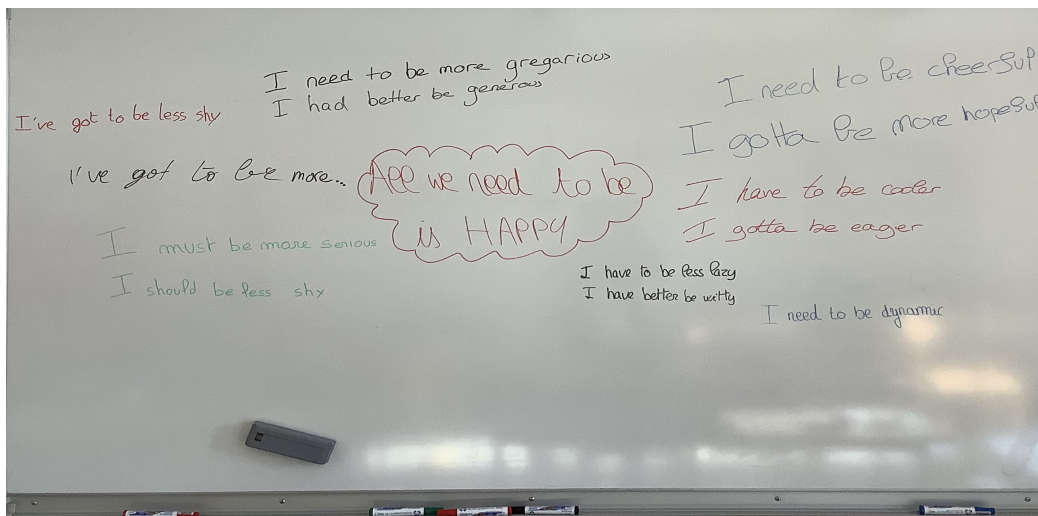 I need to be more gregarious
I had better be generous
I've got to be less shy
I've got to be more...
All we need to be
is HAPPY
I must be more serious
I should be less shy
I need to be cheerful
I gotta be more hopeful
I have to be cooler
I gotta be eager
I have to be less lazy
I have better be witty
I need to be dynamic